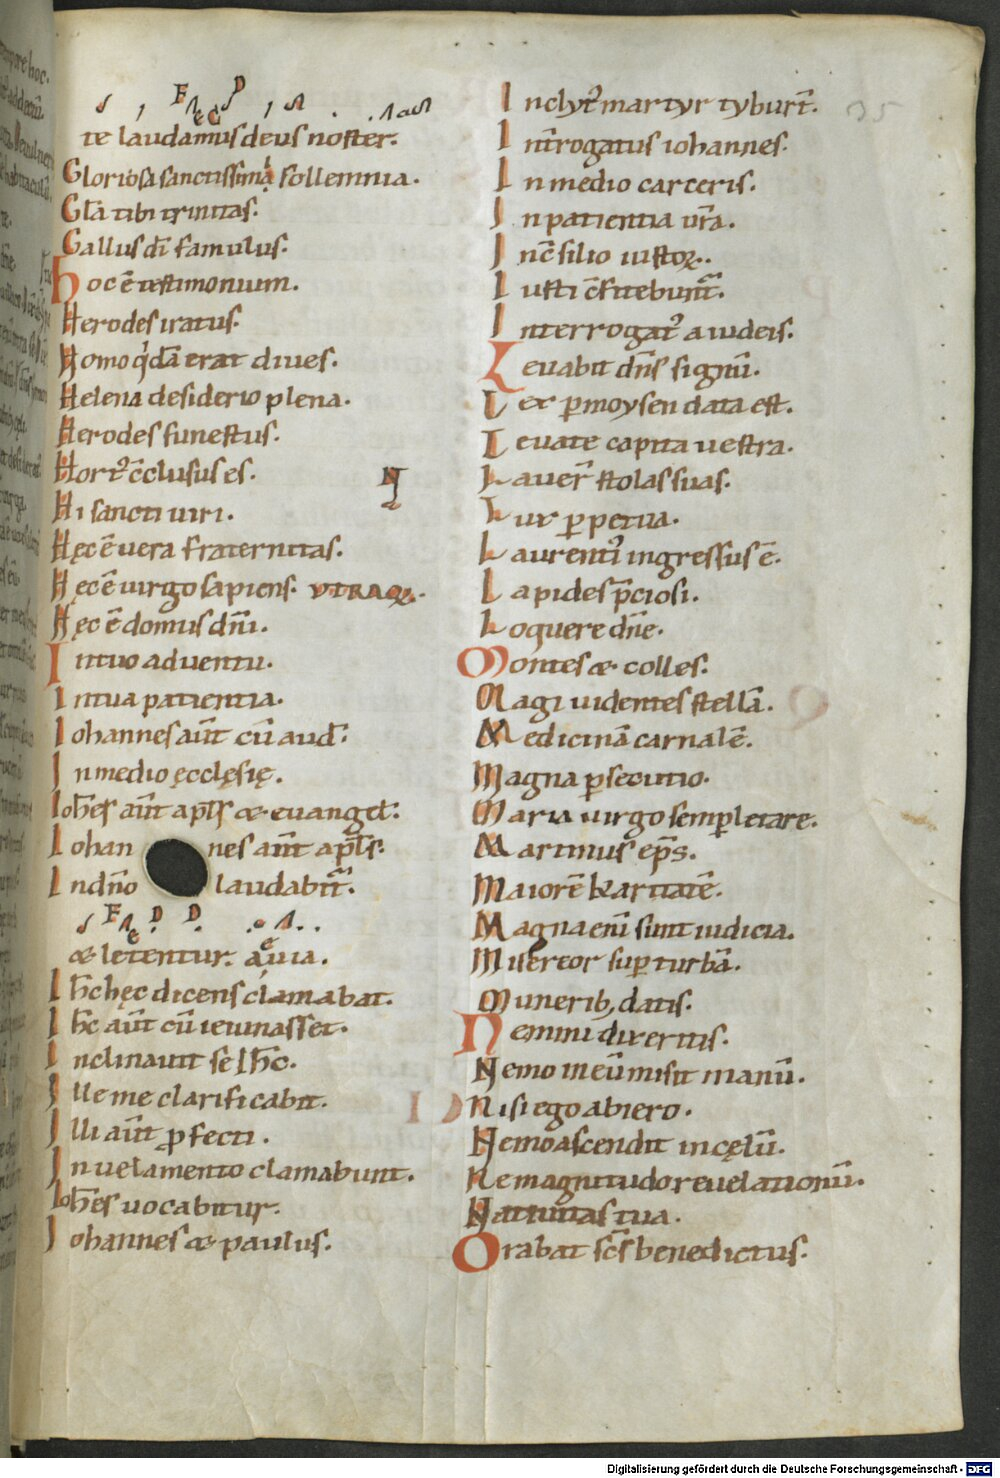 te laudamus deus noster.
Gloriosa sanctissima sollemnia.
Gl̄a tibi trinitas.
Gallus dī famulus.
Hoc ē testimonium.
Herodes iratus.
Homo qͥdā erat diues.
Helena desiderio plena.
Herodes funestus.
Hort᷒ c̄clusus es.
Hi sancti uiri.
Hęc ē uera fraternitas.
Hęc ē uirgo sapiens. VTRAQ;.
Hęc ē domus dn̄i.
In tuo aduentu.
In tua patientia.
Iohannes aūt cū aud̄.
In medio ęcclęsię.
Ioh̄es aūt apl̄s & euangel̄.
Iohannes aūt apl̄s.
In dn̄o laudabit̄.
& letentur. aeuia.
Ih̄c hęc dicens clamabat.
Ih̄c aūt cū ieiunasset.
Inclinauit se Ih̄c.
Ille me clarificabit.
Illi aūt ꝓfecti.
In uelamento clamabunt.
Ioh̄es uocabitur.
Iohannes & paulus.
Inclyt᷒ martyr tyburt̄.
Int̄rogatus iohannes.
In medio carceris.
In patientia ur̄a.
In c̄silio iustoꝝ.
Iusti c̄fitebunt̄.
Interrogat᷒ a iudeis.
Leuabit dn̄s signū.
Lex ꝑ moysen data est.
Leuate capita uestra.
Lauer̄ stolas suas.
Lux ꝑpetua.
Laurenti᷒ ingressus ē.
Lapides p̄ciosi.
Loquere dn̄e.
Montes & colles.
Magi uidentes stellā.
Medicinā carnalē.
Magna ꝑsecutio.
Maria uirgo semꝑ letare.
Martinus ep̄s.
Maiorē karitatē.
Magna enī sunt iudicia.
Misereor suꝑ turbā.
Munerib; datis.
Nemini dixeritis.
Nemo in eū misit manū.
Nisi ego abiero.
Nemo ascendit in cęlū.
Ne magnitudo reuelationū.
Natiuitas tua.
Orabat sc̄s benedictus.
Digitalisierung gefördert durch die Deutsche Forschungsgemeinschaft - DFG